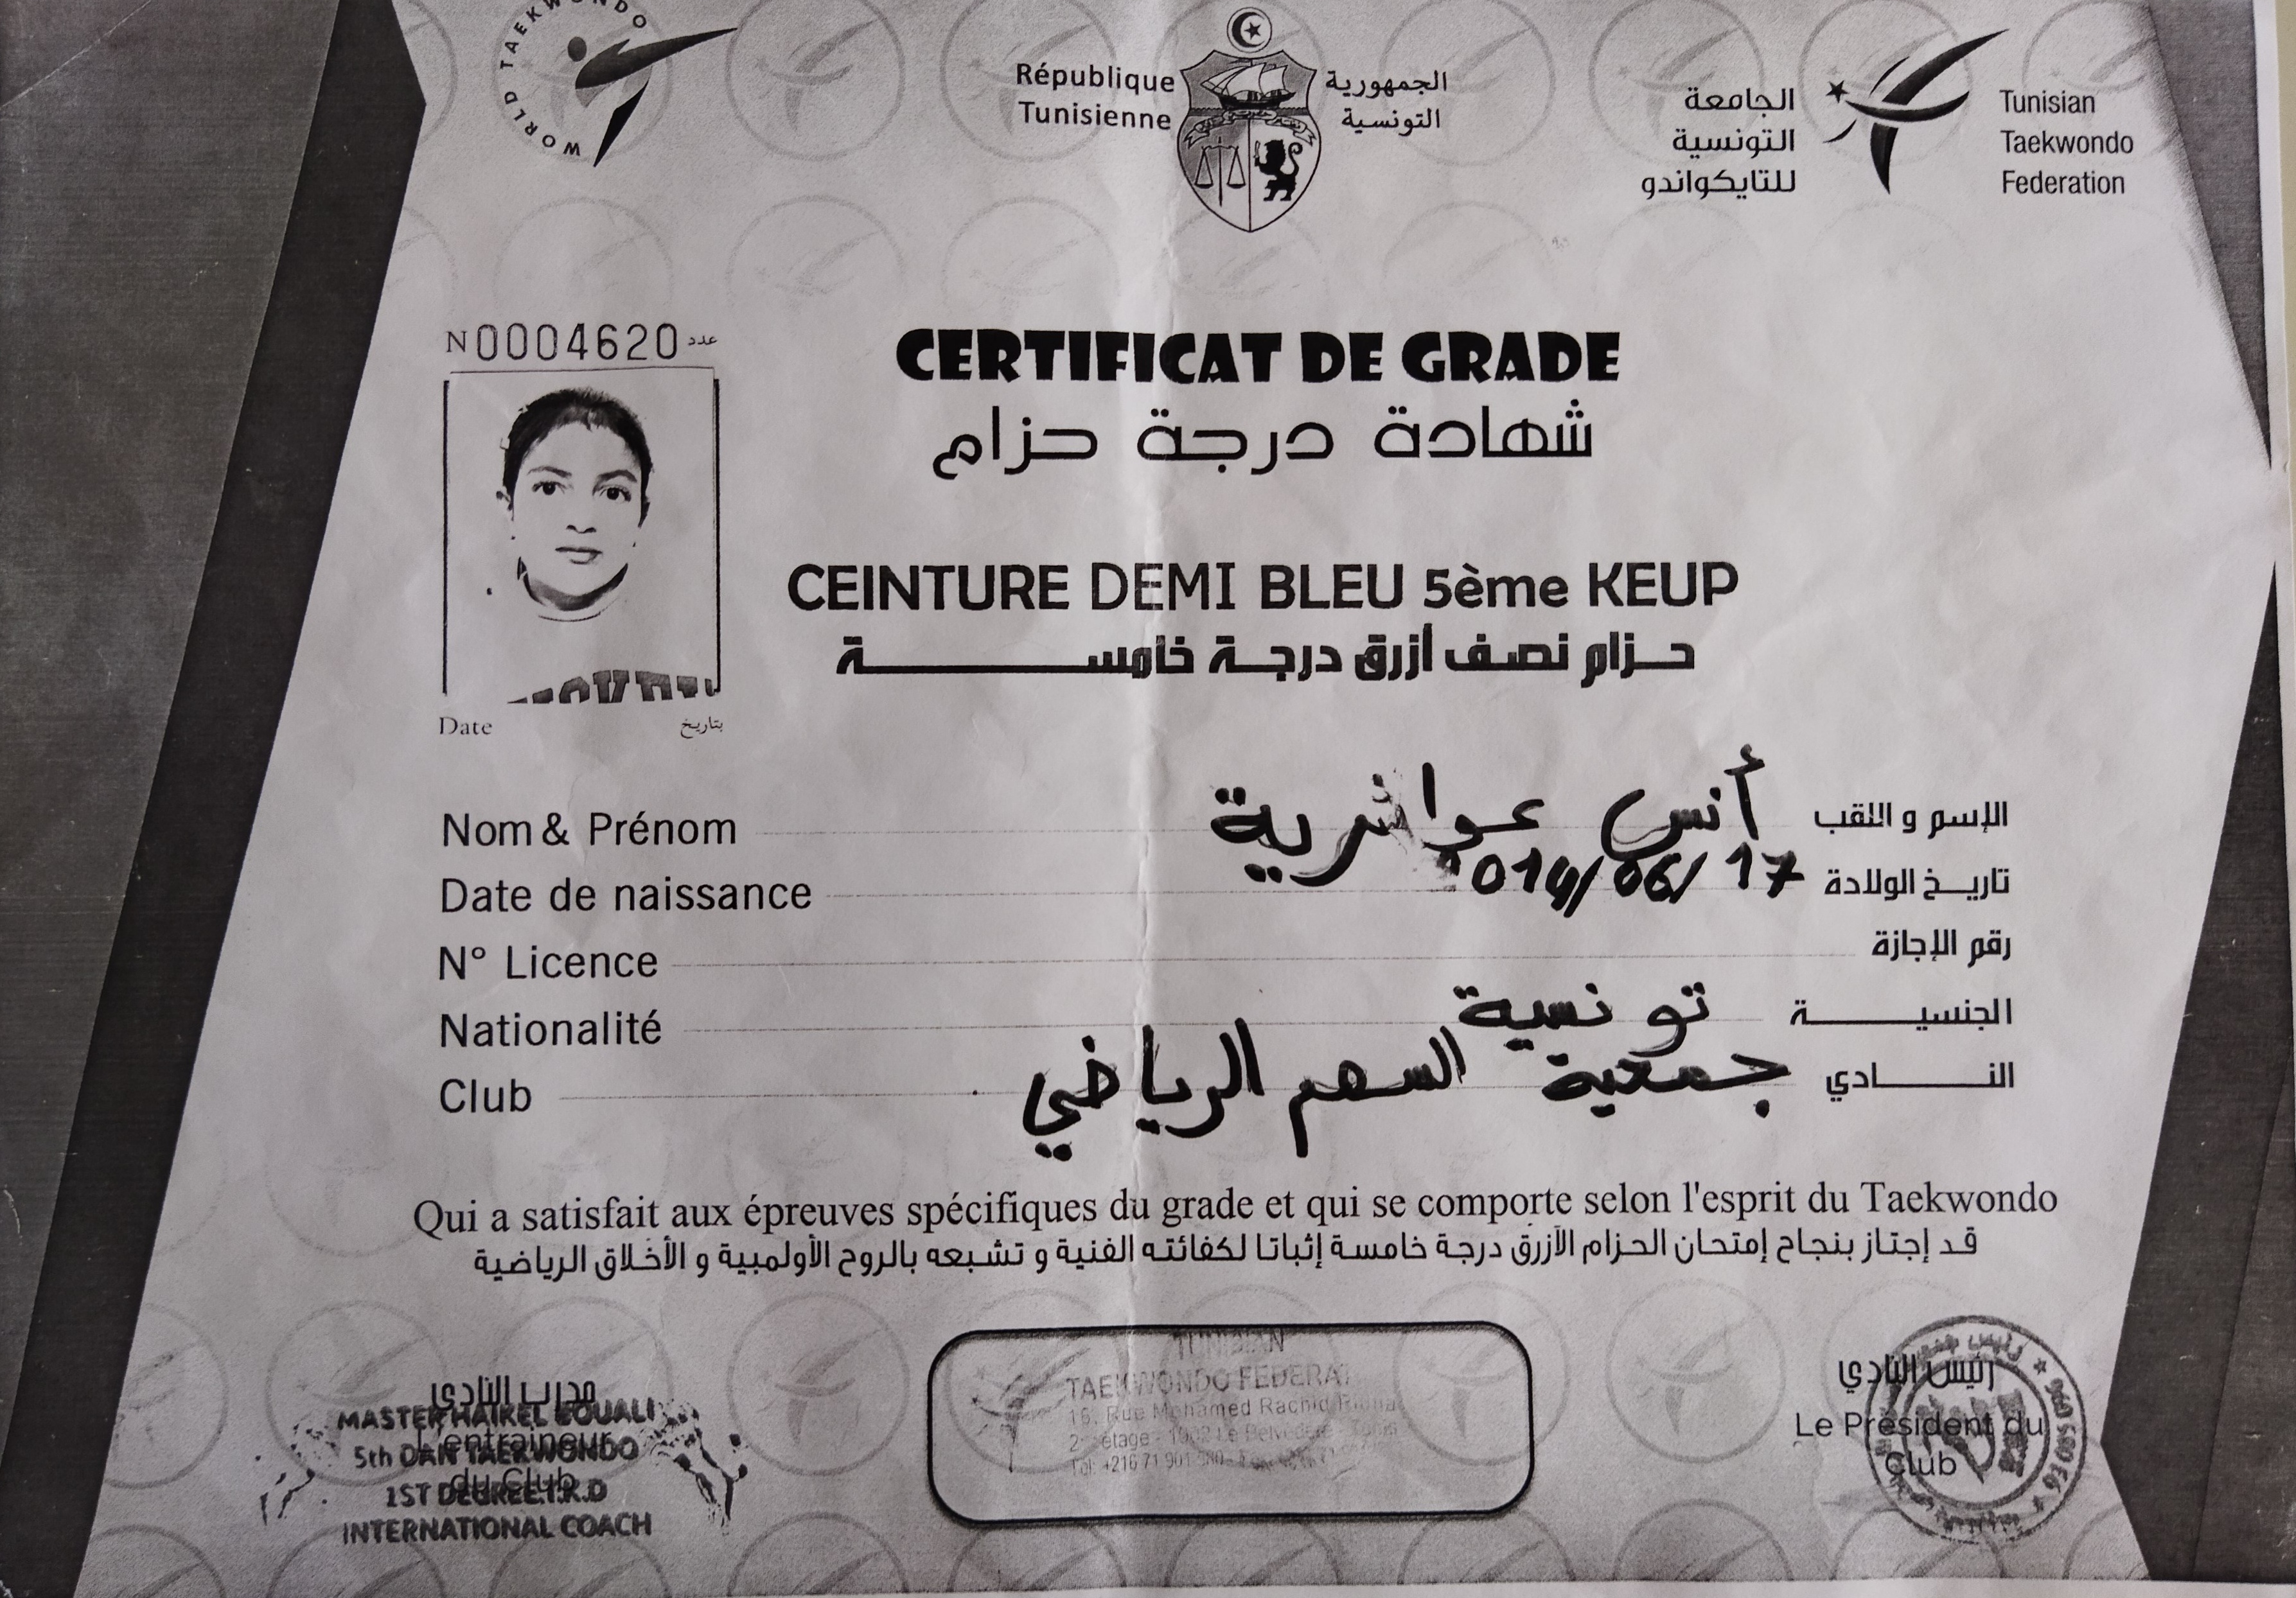 WORLD TAEKWONDO
République
Tunisienne
الجمهورية
التونسية
الجامعة
التونسية
للتايكواندو
Tunisian
Taekwondo
Federation
N 0004620 عدد
CERTIFICAT DE GRADE
شهادة درجة حزام
CEINTURE DEMI BLEU 5ème KEUP
حزام نصف أزرق درجة خامسة
Date بتاريخ
Nom & Prénom أنس عواشرية الإسم و اللقب
Date de naissance 014/06/17 تاريخ الولادة
N° Licence رقم الإجازة
Nationalité تونسية الجنسية
Club جمعية السهم الرياضي النادي
Qui a satisfait aux épreuves spécifiques du grade et qui se comporte selon l'esprit du Taekwondo
قد إجتاز بنجاح إمتحان الحزام الأزرق درجة خامسة إثباتا لكفائته الفنية و تشبعه بالروح الأولمبية و الأخلاق الرياضية
مدرب النادي
L'entraineur
du Club
MASTER HAIKEL BOUALI
5th DAN TAEKWONDO
1ST DEGREE I.R.D
INTERNATIONAL COACH
TUNISIAN
TAEKWONDO FEDERAT
16, Rue Mohamed Rachid
2 étage - 1002 Le Belvédère
Tél: +216 71 901
رئيس النادي
Le Président du
Club